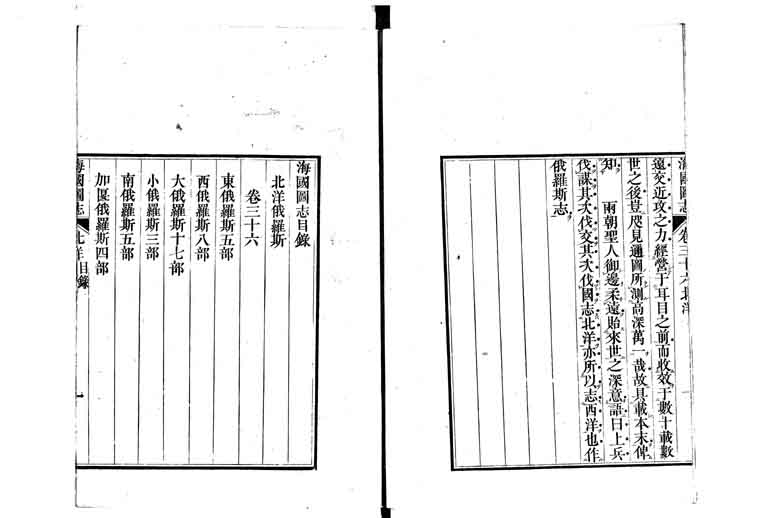 海國圖志 卷三十六北洋
遠交近攻之力經營于耳目之前而收效于數十載數
世之後豈咫見通圖所測高深萬一哉故具載本末俾
知 兩朝聖人御邊柔遠貽來世之深意語曰上兵
伐謀其次伐交其次伐國志北洋亦所以志西洋也作
俄羅斯志
海國圖志目錄
北洋俄羅斯
卷三十六
東俄羅斯五部
西俄羅斯八部
大俄羅斯十七部
小俄羅斯三部
南俄羅斯五部
加匽俄羅斯四部
海國圖志 北洋目錄 一